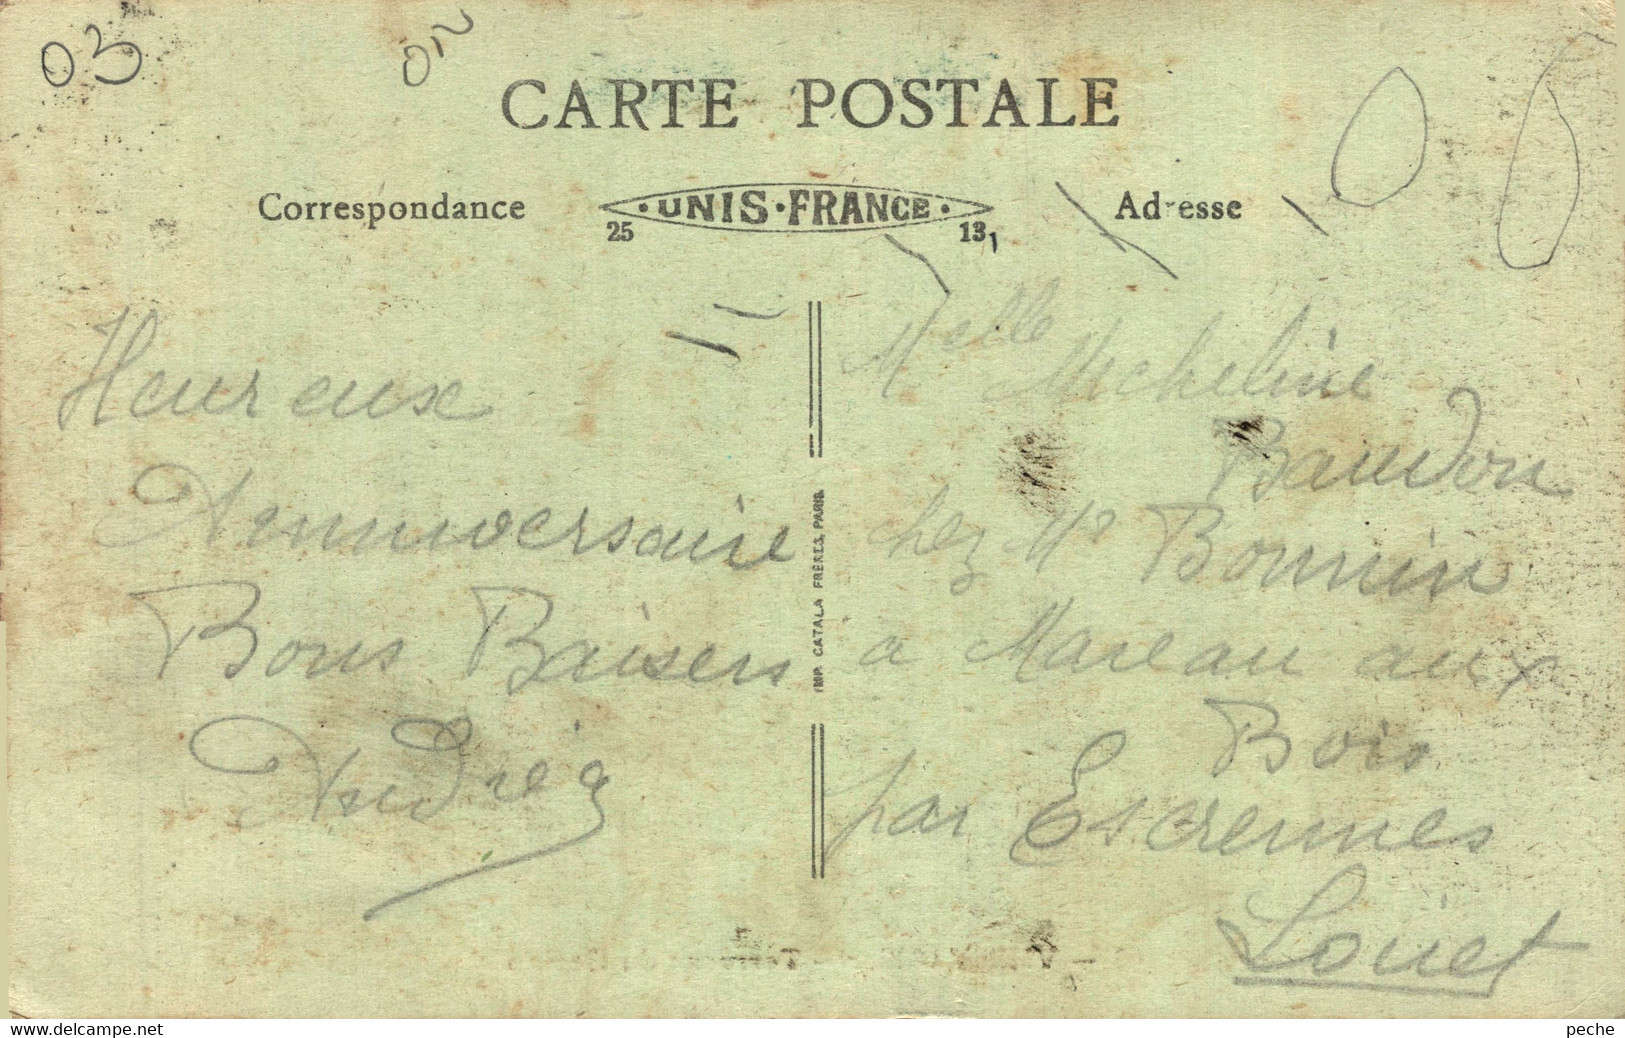 03
ON
CARTE POSTALE
Correspondance
UNIS·FRANCE
25
13
Adresse
Heureux
Anniversaire
Bons Baisers
Andréa
IMP. CATALA FRÈRES, PARIS.
Melle Micheline
Baudon
chez Mr Bonnin
a Mareau aux
Bois
par Escrennes
Loiret
www.delcampe.net
peche